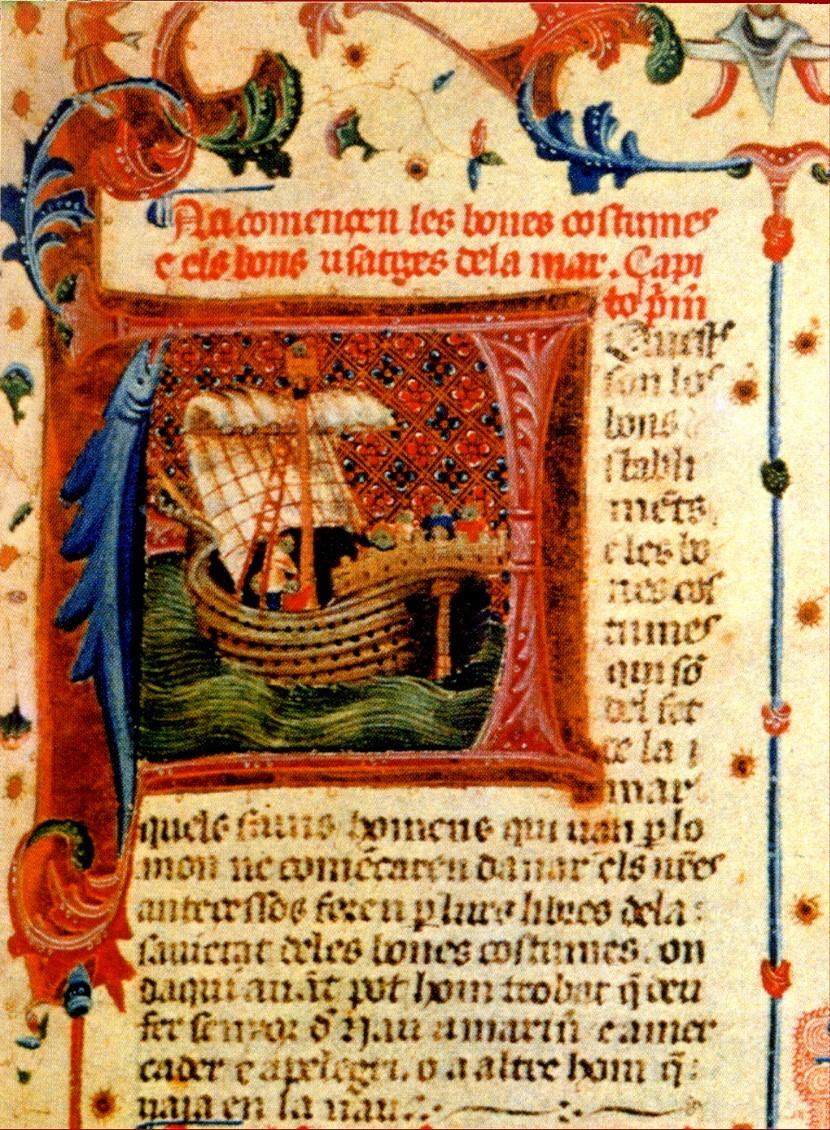 Aci comencen les bones costumes
e els bons usatges dela mar. Capi
to p̄m
Aquests
son los
bons
stabli
mēts
e les bo
nes cos
tumes
qui sō
del fet
de la
mar
quels sauis homens qui uan p̱ lo
mon ne comēcaren danar els nr̄es
antecessós feren p̱ lurs libres dela
sauietat deles bones costumes. on
daqui auāt pot hom trobar q̄ deu
fer senyor d nau a mari e amer
cader e apelegri. o a altre hom q̄
uaja en la nau